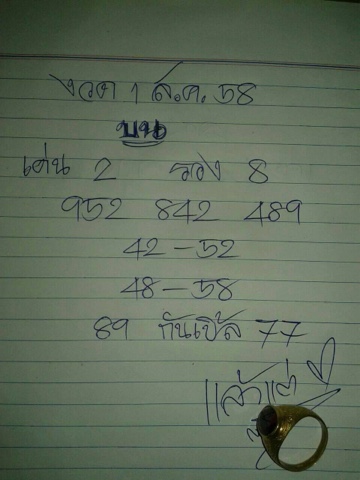 งวด 1 ส.ค. 58
บน
เด่น 2 รอง 8
952 842 489
42 - 52
48 - 58
89 กันเบิ้ล 77
แล้วแต่